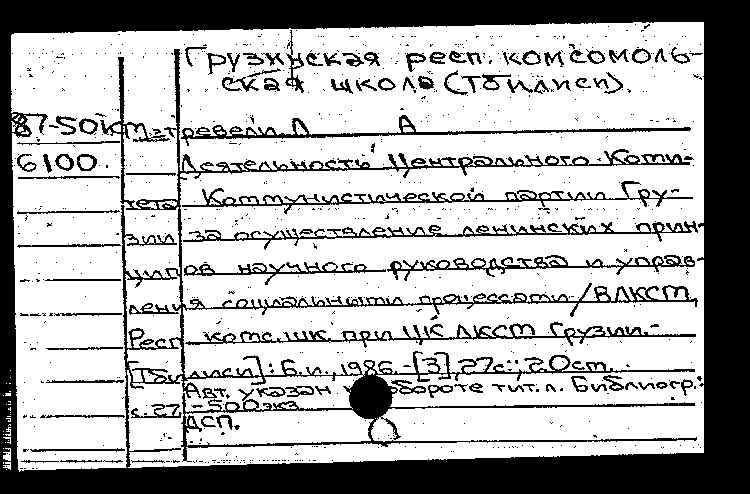 Грузинская респ. комсомоль-
ская школа (Тбилиси).
87-50км Мат ревели Л А
6100. Деятельность Центрального Коми-
тета Коммунистической партии Гру-
зии за осуществление ленинских прин-
ципов научного руководства и управ-
ления социальными процессами / ВЛКСМ,
Респ комс. шк. при ЦК ЛКСМ Грузии.-
[Тбилиси]: Б.и., 1986.-[3], 27с.; 20см.
Авт. указан обороте тит. л. Библиогр.:
с. 27 -500экз
ДСП.